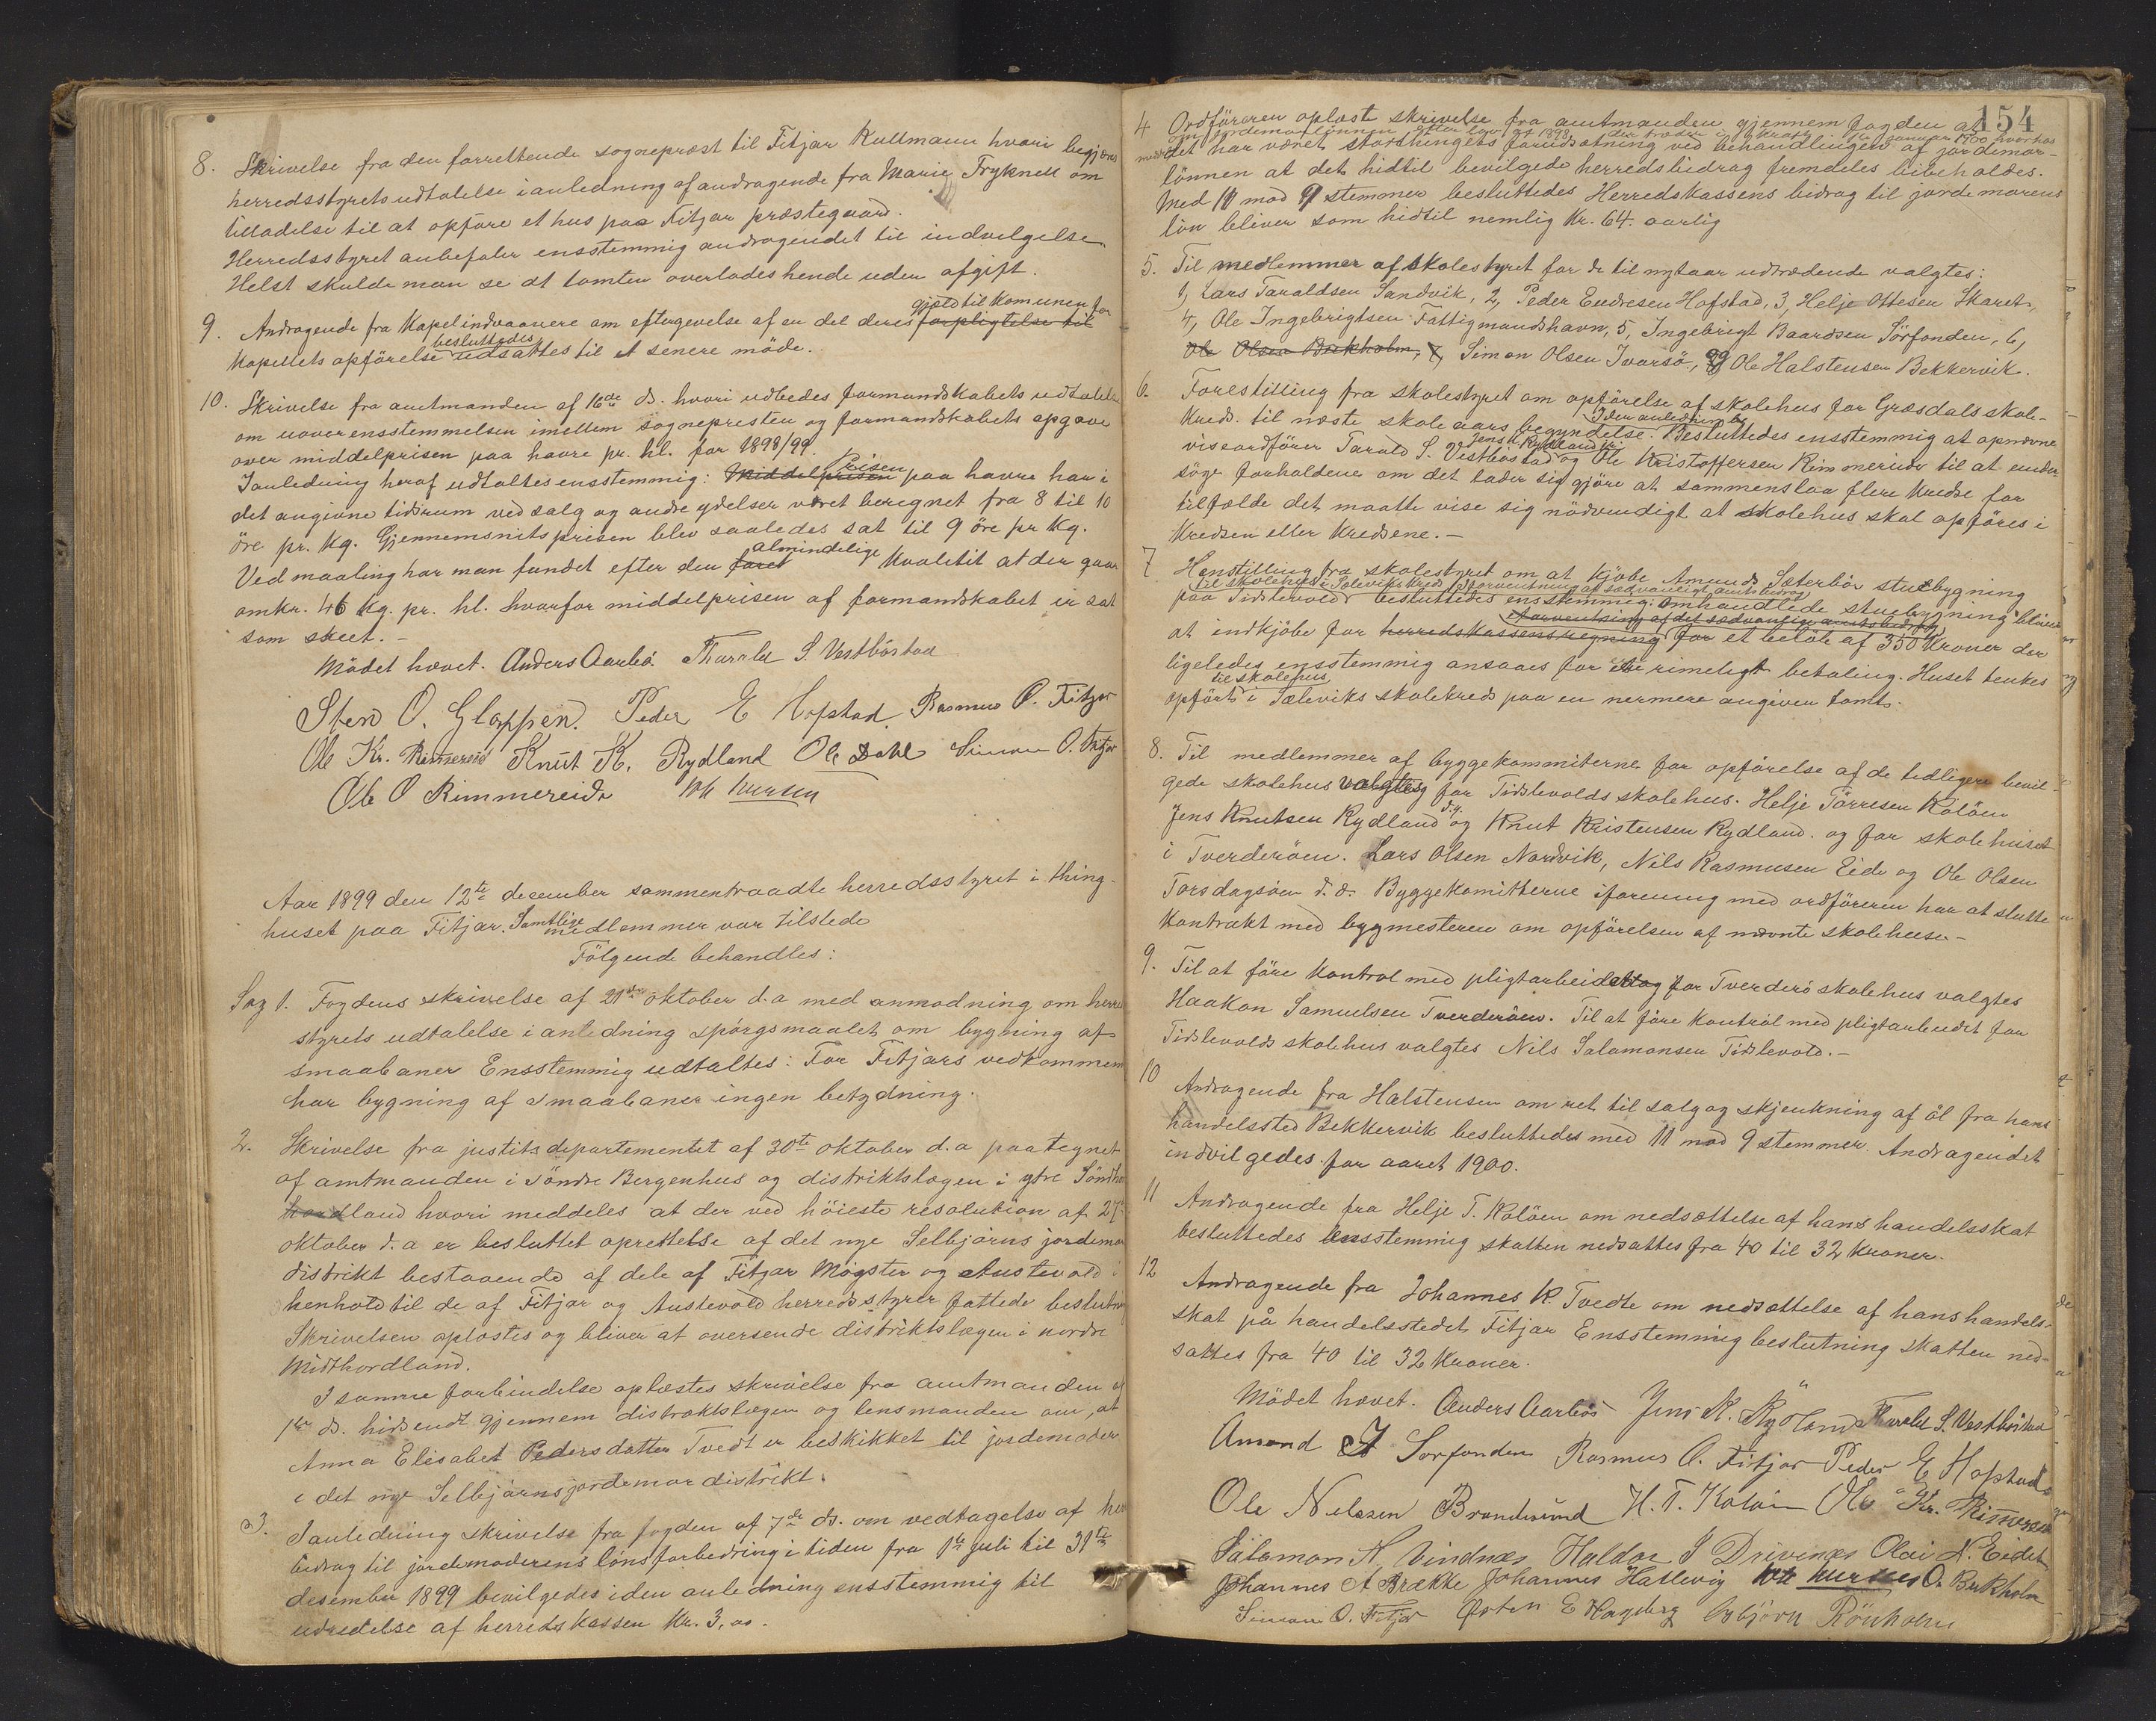 8. Skrivelse fra den forrettende sogneprest til Fitjar Kullmann hvori begjæres
herredsstyrets udtalelse i anledning af andragende fra Marie Tryknell om
tilladelse til at opføre et hus paa Fitjar præstegaard.
Herredsstyret anbefaler ensstemmig andragendet til indvilgelse.
Helst skulde man se at tomten overlades hende uden afgift.
gjæld til Komunen for
9. Andragende fra Kapelindvaanere om eftergivelse af en del deres forpligtelse til
besluttedes
Kapellets opførelse udsattes til et senere møde.
10. Skrivelse fra amtmanden af 16de ds. hvori udbedes formandskabets udtalelse
om uoverensstemmelsen imellem sognepresten og formandskabets opgave
over middelprisen paa havre pr. hl. for 1898/99.
Prisen
I anledning heraf udtaltes ensstemmig: Middelprisen paa havre har i
det angivne tidsrum ved salg og andre ydelser været beregnet fra 8 til 10
öre pr. kg. Gjennemsnitsprisen blev saaledes sat til 9 öre pr kg.
almindelige
Ved maaling har man fundet efter den Kvalitet at der gaar
omkr. 46 kg. pr. hl. hvorfor middelprisen af formandskabet er sat
som skeet. -
Mödet hævet. Anders Aarbö Tharald S. Vestböstad
Sten O. Gloppen. Peder E Hopstad Rasmus O. Fitjar
Ole Kr. Rimmereid Knut K. Rydland Ole Dahl Simon O. Fitjar
Ole O Rimmereide
Aar 1899 den 12te december sammentraadte herredsstyret i thing-
huset paa Fitjar. Samtlige medlemmer var tilstede
Fölgende behandles:
Sag 1. Fogdens skrivelse af 21de oktober d.a med anmodning om herreds
styrets udtalelse i anledning spörgsmaalet om bygning af
smaabaner Ensstemmig udtaltes: For Fitjars vedkommende
har bygning af smaabaner ingen betydning.
2. Skrivelse fra justitsdepartementet af 30te oktober d.a paategnet
af amtmanden i Söndre Bergenhus og distriktslægen i ytre Sönd-
hordland hvori meddeles at der ved höieste resolution af 27
oktober d.a er besluttet oprettelse af det nye Selbjörns jordemor
distrikt bestaaende af dele af Fitjar Mögster og Austevold i
henhold til de af Fitjar og Austevold herredsstyrer fattede beslutning
Skrivelsen oplæstes og bliver at oversende distriktslægen i nordre
Midthordland.
I samme forbindelse oplæstes skrivelse fra amtmanden af
1ste ds. hidsendt gjennem distriktslægen og lensmanden om, at
Anna Elisabet Pedersdatter Tvedt er beskikket til jordemoder
i det nye Selbjörns jordemordistrikt.
3. I anledning skrivelse fra fogden af 7de ds. om vedtagelse af herreds
bidrag til jordemoderens lönsforbedring i tiden fra 1ste juli til 31te
desember 1899 bevilgedes i den anledning ensstemmig til
udredelse af herredskassen Kr. 3,00.
154
4 Ordföreren oplæste skrivelse fra amtmanden gjennem fogden at
om jordemorlønnen efter lov af 1898 der træder i kraft 1 januar 1900 hvorhos
det har været storthingets forudsætning ved behandlingen af jordemor-
lönnen at det hidtil bevilgede herredsbidrag fremdeles bibeholdes.
Med 11 mod 9 stemmer besluttedes Herredskassens bidrag til jordemorens
lön bliver som hidtil nemlig Kr. 64. aarlig
5. Til medlemmer af skolestyret for de til nytaar udtrædende valgtes:
1, Lars Taraldsen Sandvik, 2, Peder Endresen Hofstad, 3, Helje Ottesen Skaret,
4, Ole Ingebrigtsen Fattigmandshavn, 5, Ingebrigt Baardsen Sörfonden, 6,
Ole Olsen Brekholm, 7, Simon Olsen Ivarsö, Ole Halstensen Bekkervik.
6. Forestilling fra skolestyret om opförelse af skolehus for Græsdals skole-
I den anledning
Kreds. til næste skoleaars begyndelse. Besluttedes ensstemmig at opnævne
Jens K Rydland
viseordförer Tarald S. Vestböstad og Ole Kristoffersen Rimmereide til at under
söge forholdene om det lader sig gjöre at sammenslaa flere Kredse for
tilfælde det maatte vise sig nödvendigt at skolehus skal opföres i
Kredsen eller Kredsene. -
7 Henstilling fra skolestyret om at Kjöbe Amunds Sæterbös stuebygning
til skolehus i Sælevikskreds i forventning af sædvanligt amtsbidrag
paa Tislevold besluttedes ensstemmig: Omhandlede stuebygning bliver
forventning af det sædvanlige amtsbidrag
at indkjöbe for herredskassens regning for et belöb af 350 Kroner der
ligeledes ensstemmig ansaaes for en rimeligt betaling. Huset tenkes
til skolehus
opfört i Sæleviks skolekreds paa en nermere angiven tomt.
8. Til medlemmer af byggekommiterne for opförelse af de tidligere bevil-
gede skolehus valgtes for Tislevolds skolehus. Helje Törresen Kolöen
Jens Knutsen Rydland d.y. og Knut Kristensen Rydland. og for skolehuset
i Tverderöen. Lars Olsen Nordvik, Nils Rasmusen Eide og Ole Olsen
Torsdagsöen d.æ. Byggekomitterne i forening med ordföreren har at slutte
Kontrakt med bygmesteren om opförelsen af nævnte skolehuse -
9. Til at före Kontrol med pligtarbeidet for Tverderö skolehus valgtes
Haakon Samuelsen Tverderöen. Til at före Kontrol med pligtarbeidet for
Tidslevolds skolehus valgtes Nils Salamonsen Tidslevold. -
10 Andragende fra Halstensen om ret til salg og skjenkning af öl fra hans
handelssted Bekkervik besluttedes med 11 mod 9 stemmer. Andragendet
indvilgedes for aaret 1900.
11 Andragende fra Helje T. Kolöen om nedsættelse af hans handelsskat
besluttedes ensstemmig skatten nedsattes fra 40 til 32 kroner.
12 Andragende fra Johannes K. Tvedte om nedsættelse af hans handels-
skat på handelsstedet Fitjar Ensstemmig beslutning skatten ned-
sattes fra 40 til 32 Kroner.
Mödet hævet. Anders Aarbö Jens K. Rydland Tharald S. Vestböstad
Amund I Sorfonden Rasmus O. Fitjar Peder E Hopstad
Ole Nilssen Brandasund H. T. Kolöen Ole Kr. Rimmereid
Salamon N. Vindnæs Haldor J Drivenes Olai N. Eidet
Johannes A Brække Johannes Hatlevig O. Brekholm
Simon O. Fitjar Osten E Hagberg Osbjörn Rönholm